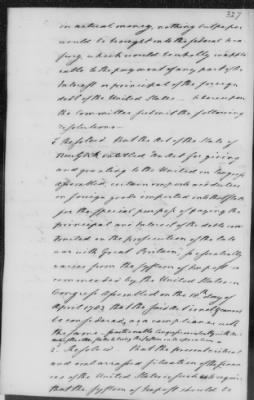 327
in actual money, nothing but paper
would be brought into the federal trea
sury which would be wholly inappli
cable to the payment of any part of the
Interest or principal of the foreign
debt of the United States. Whereupon
the Committee submit the following
resolutions
1. Resolved that the Act of the State of
New York entitled "An Act for giving
and granting to the United States in Congress
assembled, certain imposts and duties
on foreign goods imported into that State
for the special purpose of paying the
principal and interest of the debt con
tracted in the prosecution of the late
war with Great Britain, so essentially
varies from the system of impost re
commended by the United States in
Congress Assembled on the 18th day of
April 1783 that the said Act is not
be considered, as a compliance with
the same
2d Resolved that the present critical
and embarrassed situation of the finan
ces of the United States
that the system of impost should be